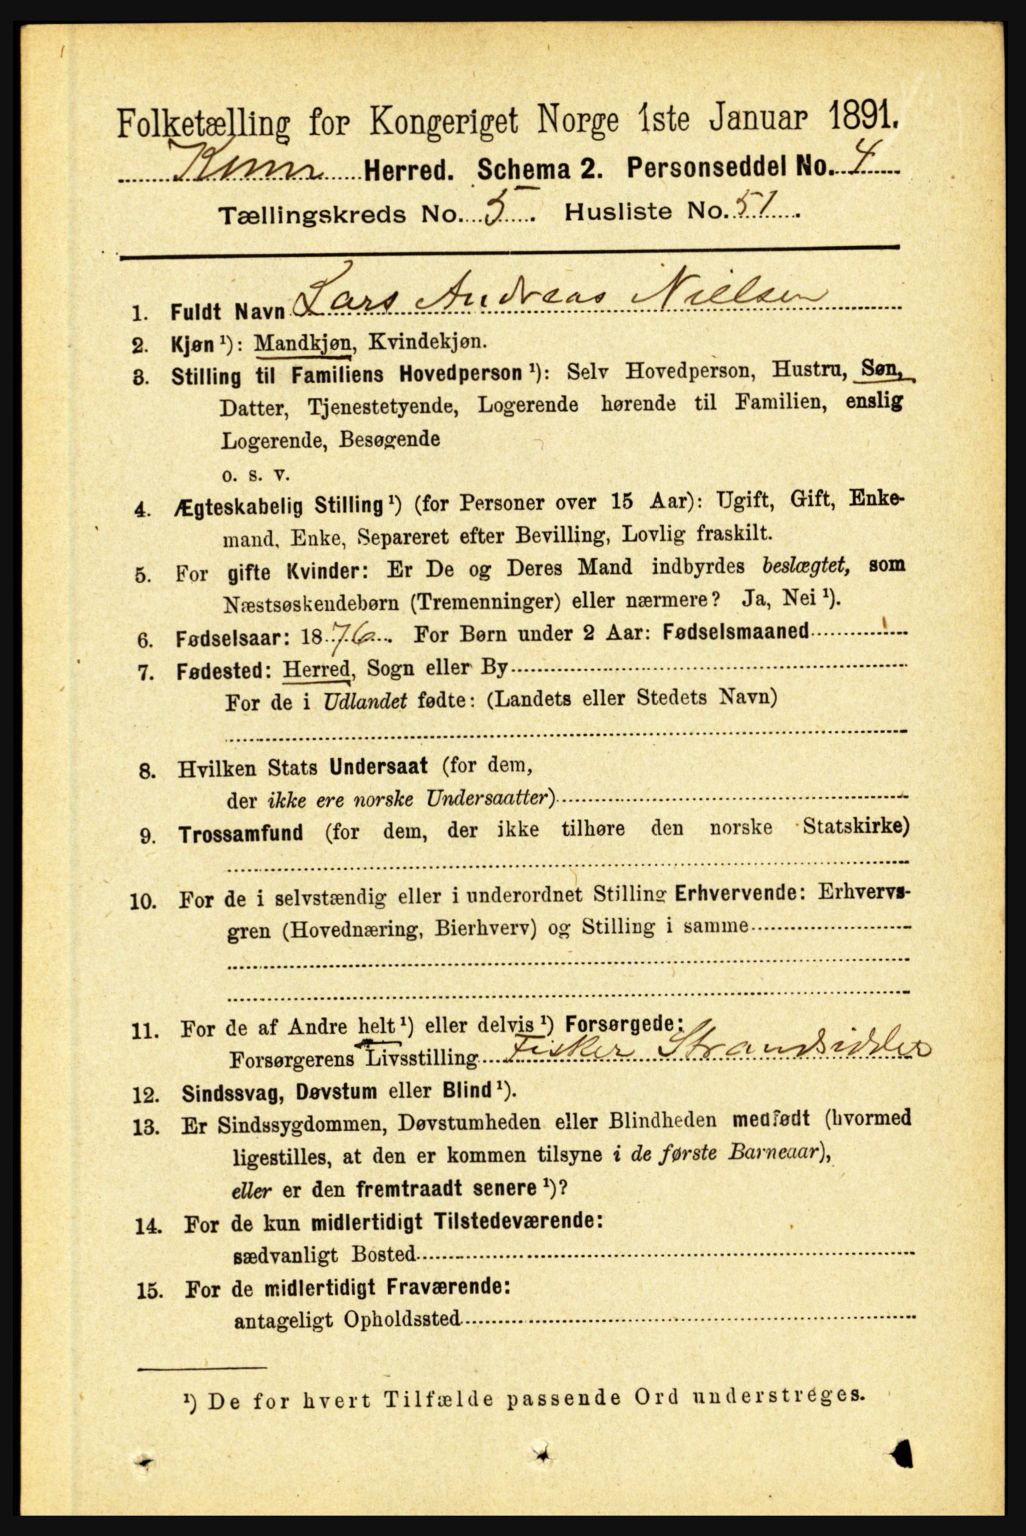 Folketælling for Kongeriget Norge 1ste Januar 1891.
Kinn Herred. Schema 2. Personseddel No. 4
Tællingskreds No. 5. Husliste No. 51.
1. Fuldt Navn Lars Andreas Nielsen
2. Kjøn ¹): Mandkjøn, Kvindekjøn.
3. Stilling til Familiens Hovedperson ¹): Selv Hovedperson, Hustru, Søn,
Datter, Tjenestetyende, Logerende hørende til Familien, enslig
Logerende, Besøgende
o. s. v.
4. Ægteskabelig Stilling ¹) (for Personer over 15 Aar): Ugift, Gift, Enke-
mand, Enke, Separeret efter Bevilling, Lovlig fraskilt.
5. For gifte Kvinder: Er De og Deres Mand indbyrdes beslægtet, som
Næstsøskendebørn (Tremenninger) eller nærmere? Ja, Nei ¹).
6. Fødselsaar: 1876. For Børn under 2 Aar: Fødselsmaaned
7. Fødested: Herred, Sogn eller By
For de i Udlandet fødte: (Landets eller Stedets Navn)
8. Hvilken Stats Undersaat (for dem,
der ikke ere norske Undersaatter)
9. Trossamfund (for dem, der ikke tilhøre den norske Statskirke)
10. For de i selvstændig eller i underordnet Stilling Erhvervende: Erhvervs-
gren (Hovednæring, Bierhverv) og Stilling i samme
11. For de af Andre helt ¹) eller delvis ¹) Forsørgede:
Forsørgerens Livsstilling Fisker Strandsidder
12. Sindssvag, Døvstum eller Blind ¹).
13. Er Sindssygdommen, Døvstumheden eller Blindheden medfødt (hvormed
ligestilles, at den er kommen tilsyne i de første Barneaar),
eller er den fremtraadt senere ¹)?
14. For de kun midlertidigt Tilstedeværende:
sædvanligt Bosted
15. For de midlertidigt Fraværende:
antageligt Opholdssted
¹) De for hvert Tilfælde passende Ord understreges.